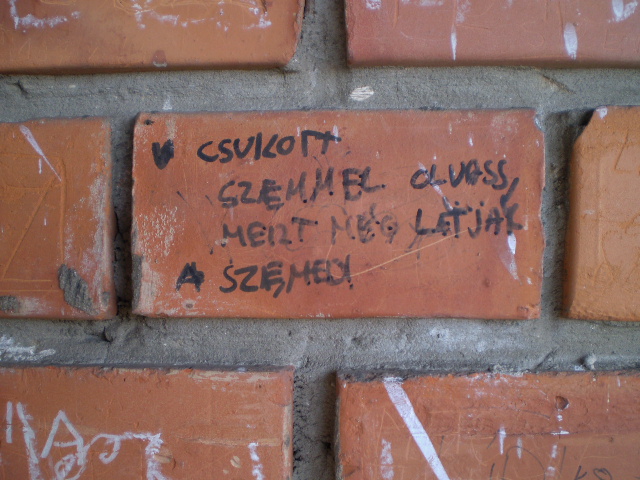 CSUKOTT
SZEMMEL OLVASS,
MERT MÉG LÁTJÁK
A SZEMED!